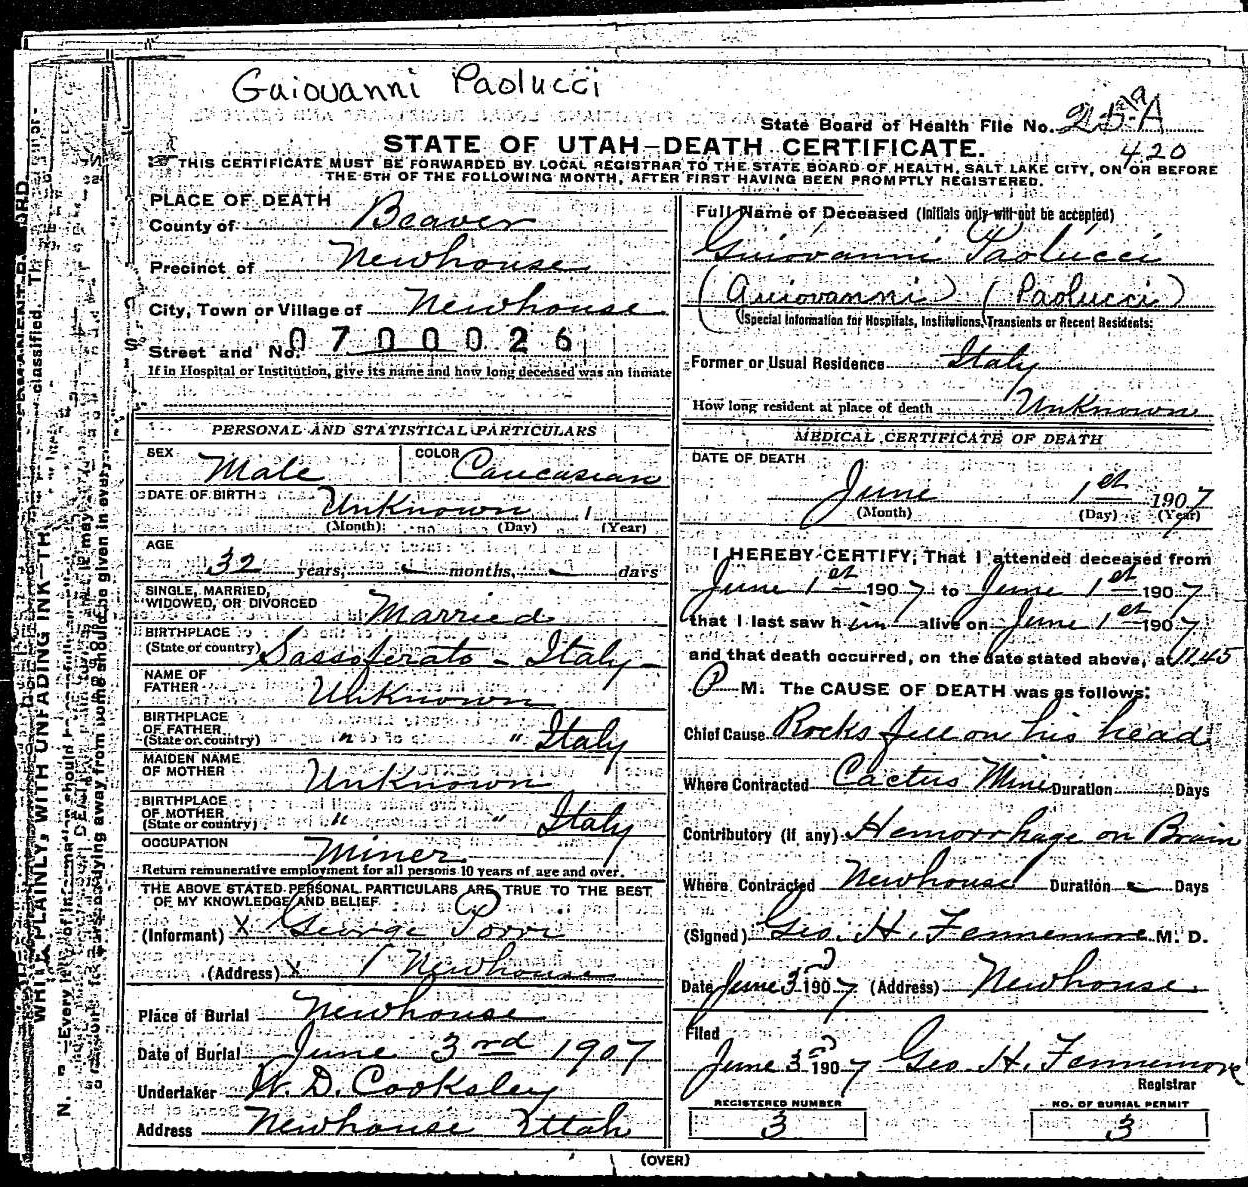 Guiovanni Paolucci
State Board of Health File No. 25-A
420
STATE OF UTAH—DEATH CERTIFICATE.
THIS CERTIFICATE MUST BE FORWARDED BY LOCAL REGISTRAR TO THE STATE BOARD OF HEALTH, SALT LAKE CITY, ON OR BEFORE
THE 5TH OF THE FOLLOWING MONTH, AFTER FIRST HAVING BEEN PROMPTLY REGISTERED.
PLACE OF DEATH
County of Beaver
Precinct of Newhouse
City, Town or Village of Newhouse
Street and No. 0700026
If in Hospital or Institution, give its name and how long deceased was an inmate
PERSONAL AND STATISTICAL PARTICULARS
SEX Male COLOR Caucasian
DATE OF BIRTH Unknown 1
(Month) (Day) (Year)
AGE
32 years, - months, - days
SINGLE, MARRIED,
WIDOWED, OR DIVORCED Married
BIRTHPLACE
(State or country) Sassoferato - Italy -
NAME OF
FATHER Unknown
BIRTHPLACE
OF FATHER
(State or country) " " Italy
MAIDEN NAME
OF MOTHER Unknown
BIRTHPLACE
OF MOTHER
(State or country) " " Italy
OCCUPATION Miner
Return remunerative employment for all persons 10 years of age and over.
THE ABOVE STATED PERSONAL PARTICULARS ARE TRUE TO THE BEST
OF MY KNOWLEDGE AND BELIEF
(Informant) X George Porri
(Address) X Newhouse
Place of Burial Newhouse
Date of Burial June 3rd 1907
Undertaker W. D. Cooksley
Address Newhouse Utah
Full Name of Deceased (Initials only will not be accepted)
Guiovanni Paolucci
(Guiovanni) (Paolucci)
(Special Information for Hospitals, Institutions, Transients or Recent Residents:
Former or Usual Residence Italy
How long resident at place of death Unknown
MEDICAL CERTIFICATE OF DEATH
DATE OF DEATH
June 1st 1907
(Month) (Day) (Year)
I HEREBY CERTIFY, That I attended deceased from
June 1st 1907 to June 1st 1907
that I last saw him alive on June 1st 1907
and that death occurred, on the date stated above, at 11.45
P M. The CAUSE OF DEATH was as follows:
Chief Cause Rocks fell on his head
Where Contracted Cactus Mine Duration Days
Contributory (if any) Hemorrhage on Brain
Where Contracted Newhouse Duration - Days
(Signed) Geo. H. Fennemore M. D.
Date June 3rd 1907 (Address) Newhouse
Filed
June 3rd 1907 Geo. H. Fennemore
Registrar
REGISTERED NUMBER
3
NO. OF BURIAL PERMIT
3
(OVER)
WRITE PLAINLY, WITH UNFADING INK—